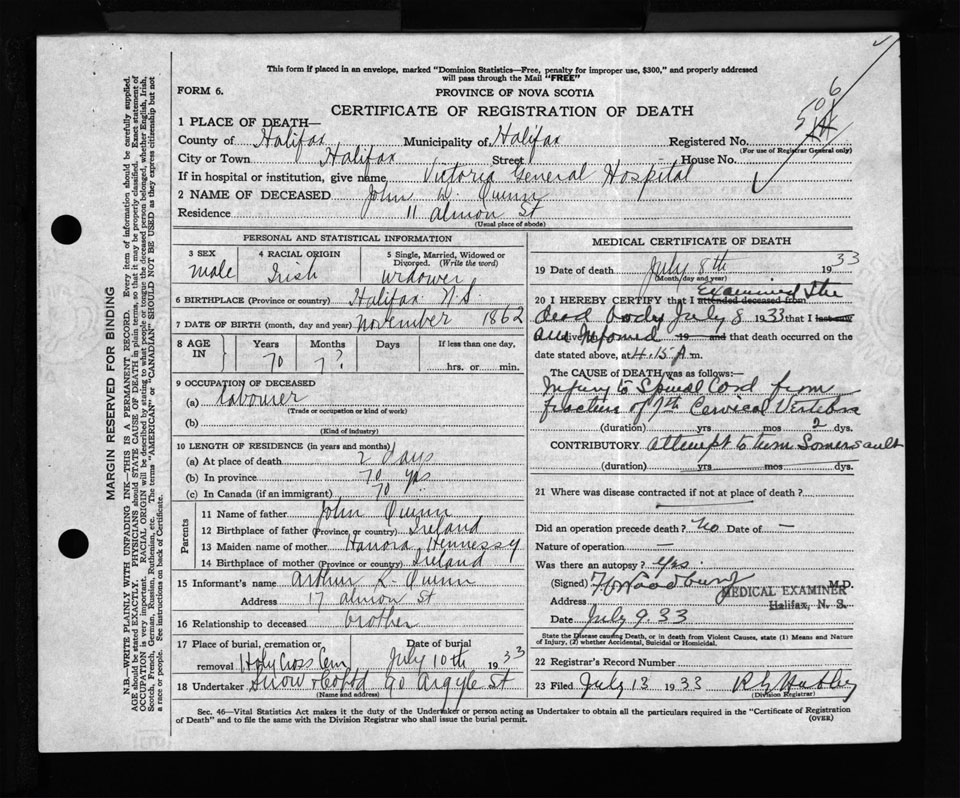 This form if placed in an envelope, marked "Dominion Statistics—Free, penalty for improper use, $300," and properly addressed
will pass through the Mail "FREE"
FORM 6.
PROVINCE OF NOVA SCOTIA
CERTIFICATE OF REGISTRATION OF DEATH
506
1 PLACE OF DEATH—
County of Halifax Municipality of Halifax Registered No.
(For use of Registrar General only)
City or Town Halifax Street House No.
If in hospital or institution, give name Victoria General Hospital
2 NAME OF DECEASED John W. Quinn
Residence 11 Almon St
(Usual place of abode)
PERSONAL AND STATISTICAL INFORMATION
3 SEX 4 RACIAL ORIGIN 5 Single, Married, Widowed or
Divorced. (Write the word)
male Irish widower
6 BIRTHPLACE (Province or country) Halifax N.S.
7 DATE OF BIRTH (month, day and year) November 1862
8 AGE IN Years Months Days If less than one day,
70 7? hrs. or min.
9 OCCUPATION OF DECEASED
(a) Labourer
(Trade or occupation or kind of work)
(b)
(Kind of industry)
10 LENGTH OF RESIDENCE (in years and months)
(a) At place of death 2 Days
(b) In province 70 yrs
(c) In Canada (if an immigrant) 70
Parents
11 Name of father John Quinn
12 Birthplace of father (Province or country) Ireland
13 Maiden name of mother Hanora Hennessy
14 Birthplace of mother (Province or country) Ireland
15 Informant's name Arthur L. Quinn
Address 17 Almon St
16 Relationship to deceased brother
17 Place of burial, cremation or Date of burial
removal Holy Cross Cem July 10th 1933
18 Undertaker Snow & Co Ltd 90 Argyle St
(Name and address)
MEDICAL CERTIFICATE OF DEATH
19 Date of death July 8th 1933
(Month, day and year)
20 I HEREBY CERTIFY that I attended deceased from examined the
dead body July 8 1933 that I last saw
am informed alive on 19 and that death occurred on the
date stated above, at 4.15 A.m.
The CAUSE of DEATH was as follows:—
Injury to Spinal Cord from
fracture of 7th Cervical Vertebra
(duration) yrs mos 2 dys.
CONTRIBUTORY attempt to turn Somersault
(duration) yrs mos dys.
21 Where was disease contracted if not at place of death?
Did an operation precede death? No Date of —
Nature of operation —
Was there an autopsy? Yes.
(Signed) Woodbury M.D.
Address MEDICAL EXAMINER
Halifax, N. S.
Date July 9. 33
State the Disease causing Death, or in death from Violent Causes, state (1) Means and Nature
of Injury, (2) whether Accidental, Suicidal or Homicidal.
22 Registrar's Record Number
23 Filed July 13 1933
(Division Registrar)
Sec. 46—Vital Statistics Act makes it the duty of the Undertaker or person acting as Undertaker to obtain all the particulars required in the "Certificate of Registration
of Death" and to file the same with the Division Registrar who shall issue the burial permit.
(OVER)
MARGIN RESERVED FOR BINDING
N.B.—WRITE PLAINLY WITH UNFADING INK—THIS IS A PERMANENT RECORD. Every item of information should be carefully supplied.
AGE should be stated EXACTLY. PHYSICIANS should STATE CAUSE OF DEATH in plain terms, so that it may be properly classified. Exact statement of
OCCUPATION is very important. RACIAL ORIGIN will be described by stating to what people or tongue the deceased person belonged, whether English, Irish,
Scotch, French, German, Russian, Ruthenian, etc. The terms "AMERICAN" or "CANADIAN" SHOULD NOT BE USED as they express citizenship but not
a race or people. See instructions on back of Certificate.